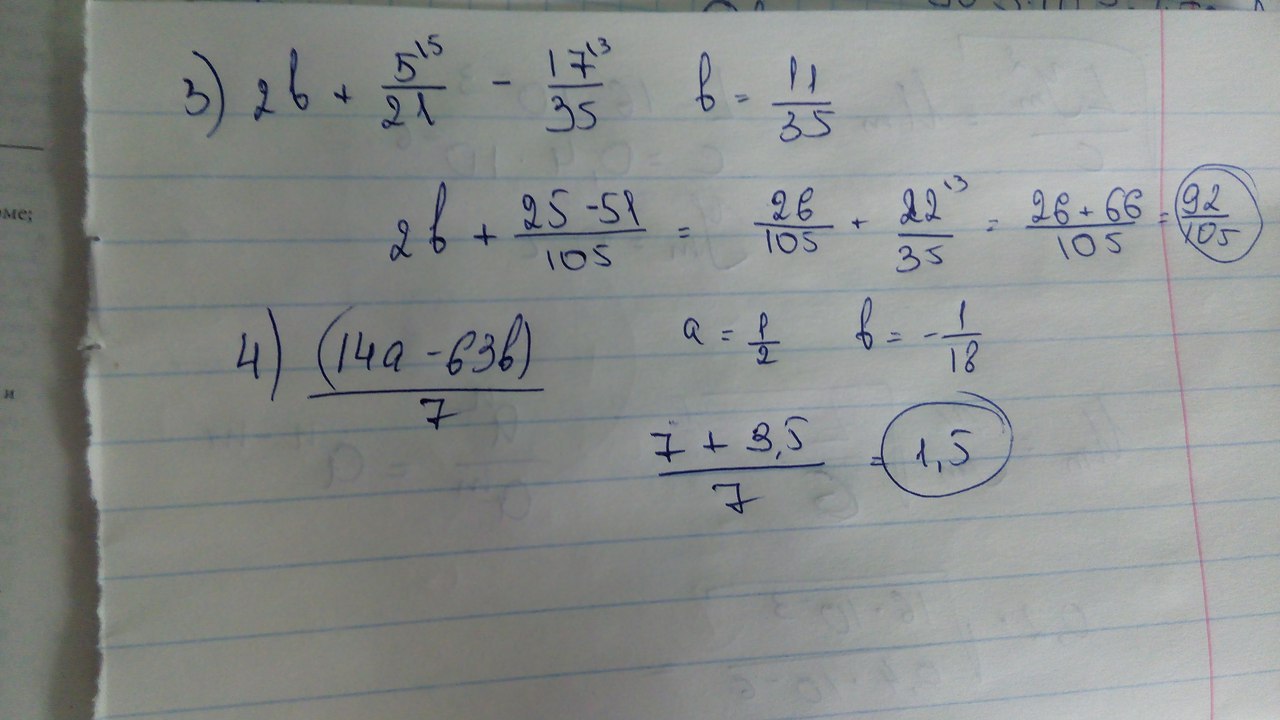 3) 2b + 5^15/21 - 17^13/35 b = 11/35
2b + (25 - 51)/105 = 26/105 + 22^13/35 = (26 + 66)/105 = 92/105
4) (14a - 63b)/7 a = 1/2 b = -1/18
(7 + 3,5)/7 = 1,5
оме;
и